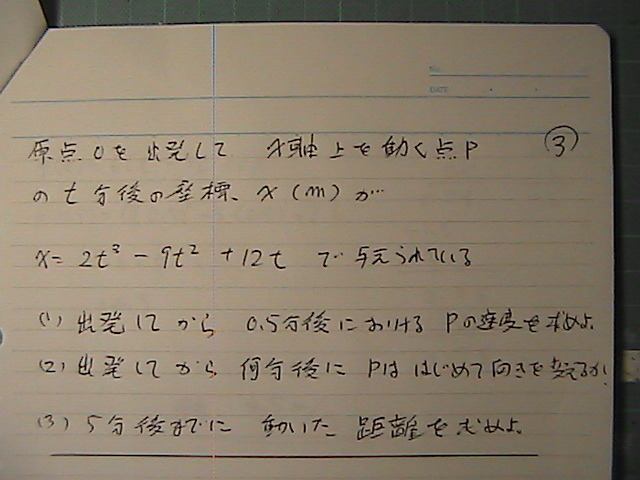 No.
DATE
原点Oを出発して x軸上を動く点P ③
のt分後の座標、x(m)が
x= 2t³ - 9t² + 12t で与えられている
(1) 出発してから 0.5分後における Pの速度を求めよ.
(2) 出発してから 何分後に Pは はじめて向きを変えるか!
(3) 5分後までに 動いた 距離を求めよ.